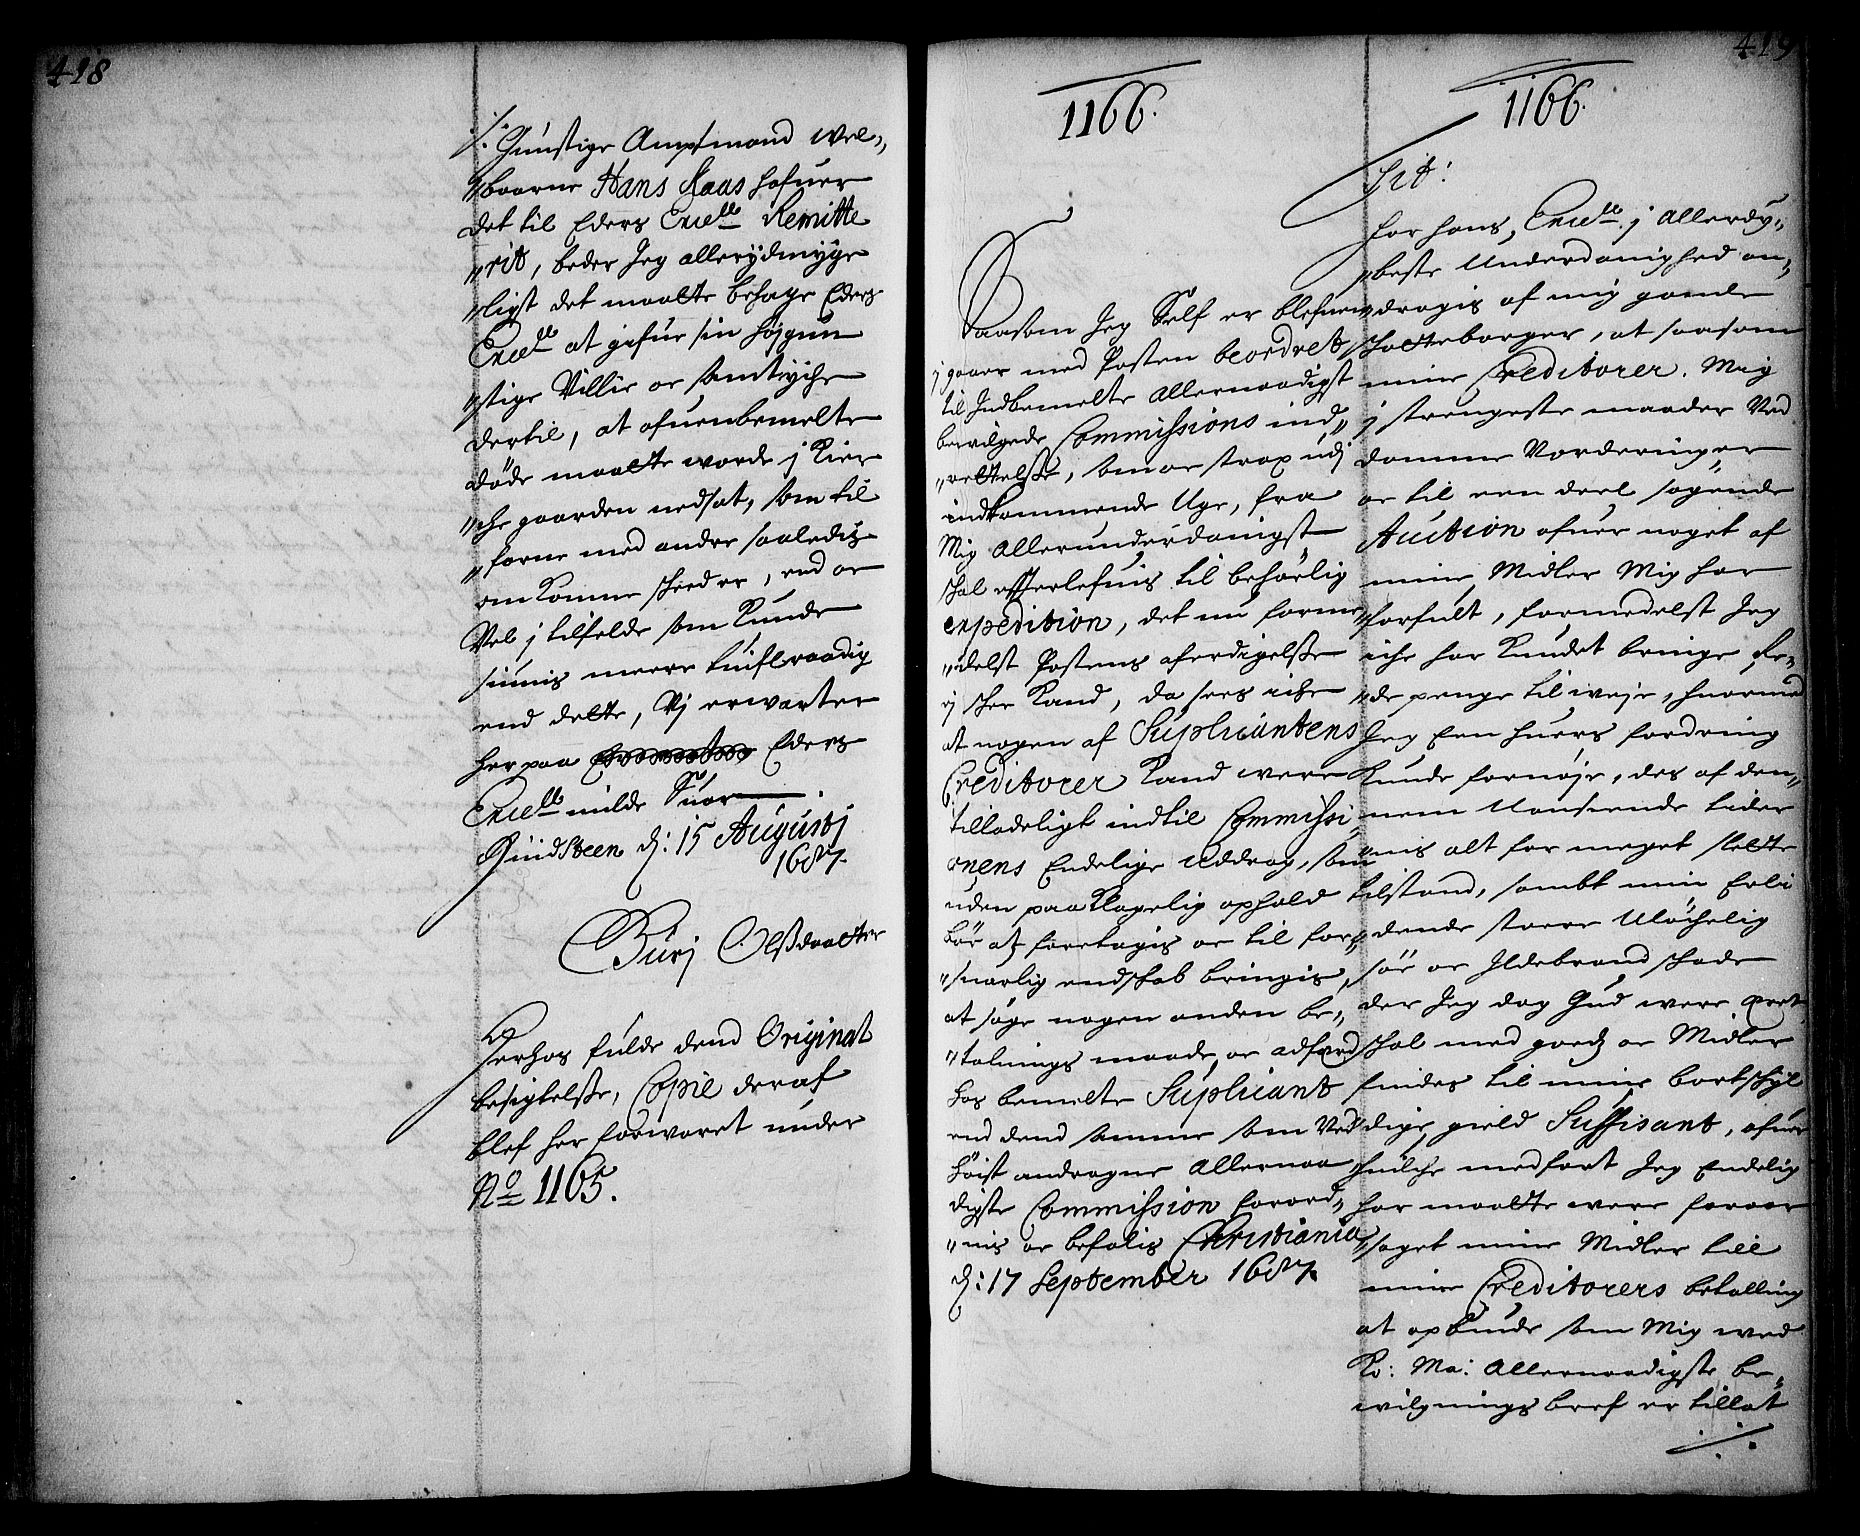 418
·/· Gunstige Amptmand wel„
„baarne Hans Kaas hafuer
det til Eders Excelle Remitte
„rit, beder Jeg allerydmyge
„ligst det maatte behage Eders
Excelle at gifue sin højgun
„stige Villie oc Samtyche
dertil, at ofuenbemelte
døde maatte worde j Kier
„che gaarden nedsat, som til
„forne med andre saaledis
omkomne scheed er, end oc
Vel j tilfelde som kunde
siunis meere tuiflraadig
end dette, Vj erwarter
herpaa Eders
Excelle milde Suar.
Quindsteen d: 15 Augustj
1687.
Burj Olsdaatter
Herhos fulde dend Original
besigtelse, Copie deraf
blef her forwaret under
No 1165.
419
1166.
Saasom Jeg Self er blefuen
j gaar med Posten beordret
til Indbemelte Allernaadigst
bevilgede Commissions ind„
„rettelse, som oc strax udj
indkommende Uge, fra
Mig Allerunderdanigst
schal efterlefuis til behørlig
expedition, det nu forme„
„delst Postens afferdigelse
ej schee kand, da sees iche
at nogen af Suplicantens
Creditorer kand were
tilladeligt indtil Commissi„
onens Endelige Uddrag, som
uden paaklagelig ophold
bør at foretagis oc til for„
„suarlig endschab bringis,
at søge nogen anden be„
„talnings maade, oc adfærd
hos bemelte Suplicant
end dend samme som Ved
høist andragne Allernaa
digste Commission forord„
„nis oc befalis Christiania
d: 17 September 1687.
1166.
Hit:
For hans, Excelle. j Allerdy„
„beste Underdanighed an„
„dragis af mig gamle
schotteborger, at saasom
mine Creditorer. Mig
j strengeste maader Ved
domme Vorderinger
oc til een deel sagende
Auction ofuer noget af
mine Midler Mig har
„forfult, formedelst Jeg
iche har kundet bringe Re„
„de penge til weje, huormed
Jeg Een huers fordring
kunde fornøje, des af den„
nem Uanseende tider
„nis alt for meget slette
tilstand, sambt min Erli
dende stoere Uløchelig
søe oc Ildebrand schade
der Jeg dog Gud were ært
schal med godz oc Midler
findes til mine bortschyl
dige gield Suffisant, ofuer
huilche medfart Jeg Endelig
har maatte were foraar
„saget mine Midler till
mine Creditorers betalling
at opbiude som Mig wed
Ko: Ma: Allernaadigste be„
wilgnings bref er tillat
·/·